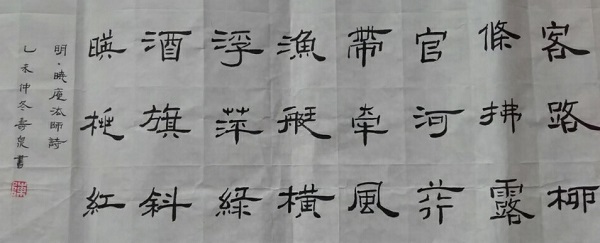 客路柳
條拂露
官河荇
帶牽風
漁艇橫
浮萍綠
酒旗斜
暎桃紅
明·曉庵法師詩
乙未仲冬壽泉書